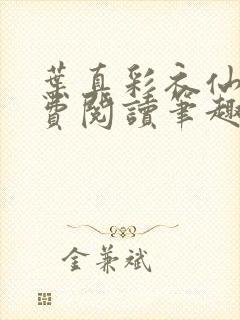 葉真彩衣仙
費閱讀筆趣
金兼斌